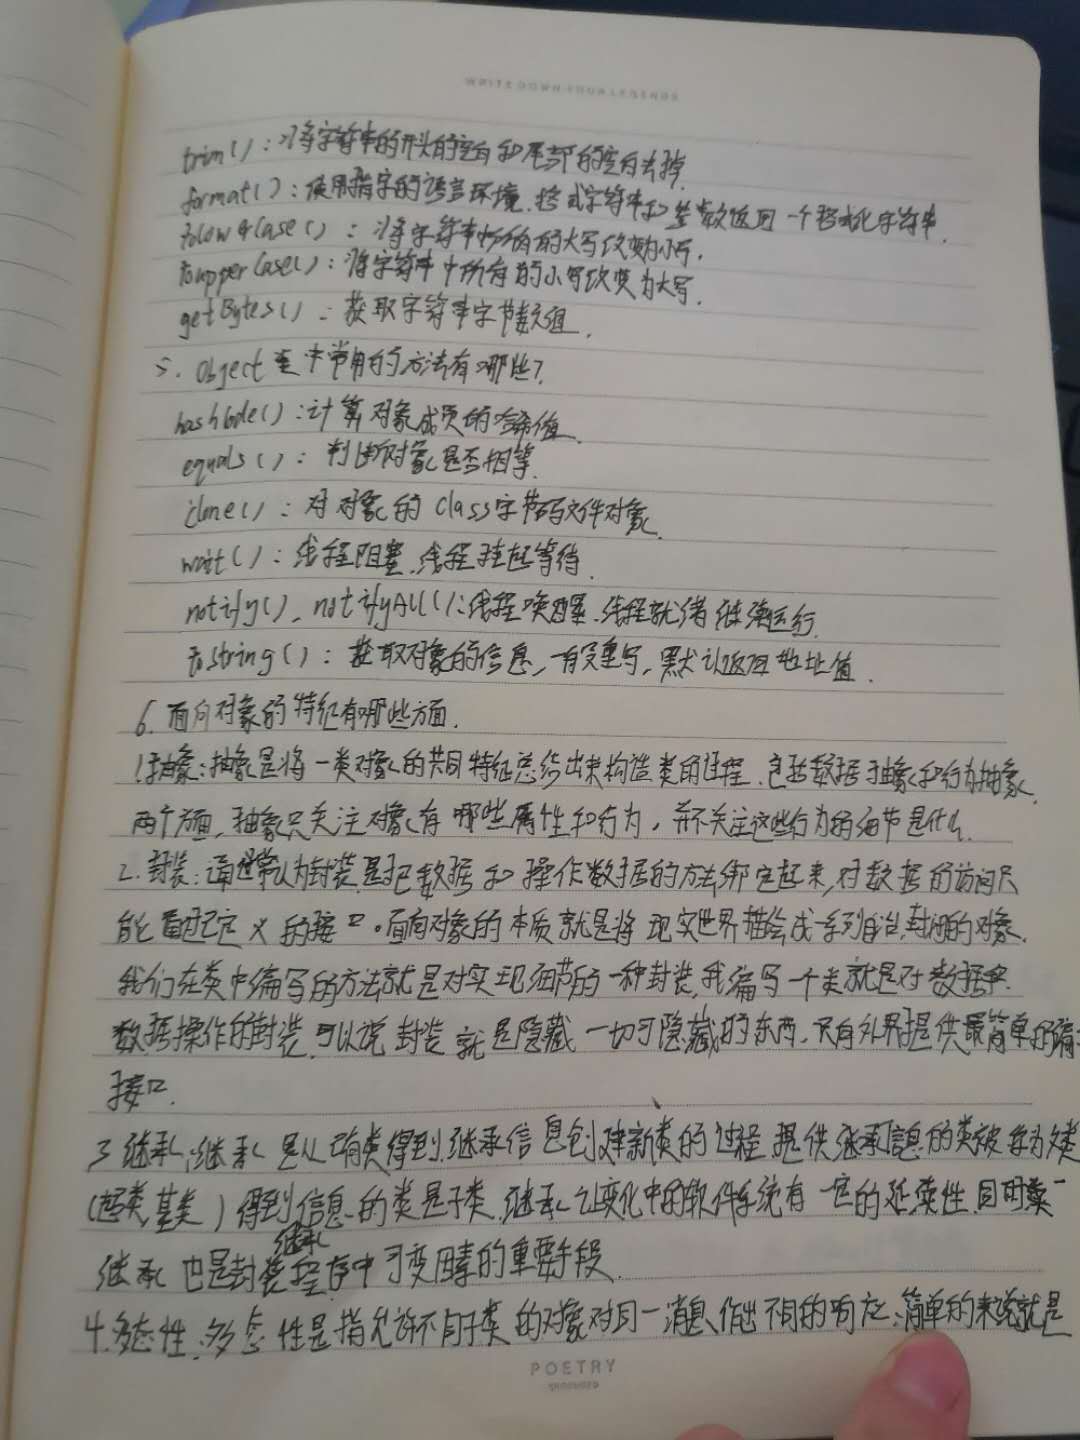 WRITE DOWN YOUR LEGENDS
trim()：将字符串的开头的空白和尾部的空白去掉.
format()：使用指字的语言环境.格式字符串和参数返回一个格式化字符串.
tolowerCase()：将字符串所有的大写改变为小写.
toupperCase()：将字符串中所有的小写改变为大写.
getBytes()：获取字符串字节数组.
5. Object 类中常用的方法有哪些?
hashCode()：计算对象成员的哈希值.
equals()：判断对象是否相等.
clone()：对对象的 Class字节码文件对象.
wait()：线程阻塞.线程挂起等待.
notify(), notifyAll()：线程唤醒.线程就绪继续运行.
toString()：获取对象的信息,一有没重写,默认返回地址值.
6. 面向对象的特征有哪些方面.
1.抽象：抽象是将一类对象的共同特征总结出来构造类的过程.包括数据抽象和行为抽象
两个方面,抽象只关注对象有哪些属性和行为，并不关注这些行为的细节是什么.
2.封装：通常认为封装是把数据和操作数据的方法绑定起来,对数据的访问只
能 定义的接口。面向对象的本质就是将现实世界描绘成一系列自治,封闭的对象.
我们在类中编写的方法就是对实现细节的一种封装,我编写一个类就是对数据
数据操作的封装.可以说封装就是隐藏一切可隐藏的东西.只向外界提供最简单的编
接口.
3.继承：继承是从已有类得到继承信息创建新类的过程.提供继承信息的类被称为父类
(超类,基类)得到信息的类是子类.继承让变化中的软件系统有一定的延续性.同时
继承
继承也是封装程序中可变因素的重要手段.
4.多态性.多态性是指允许不同子类的对象对同一消息作出不同的响应：简单的来说就是
POETRY